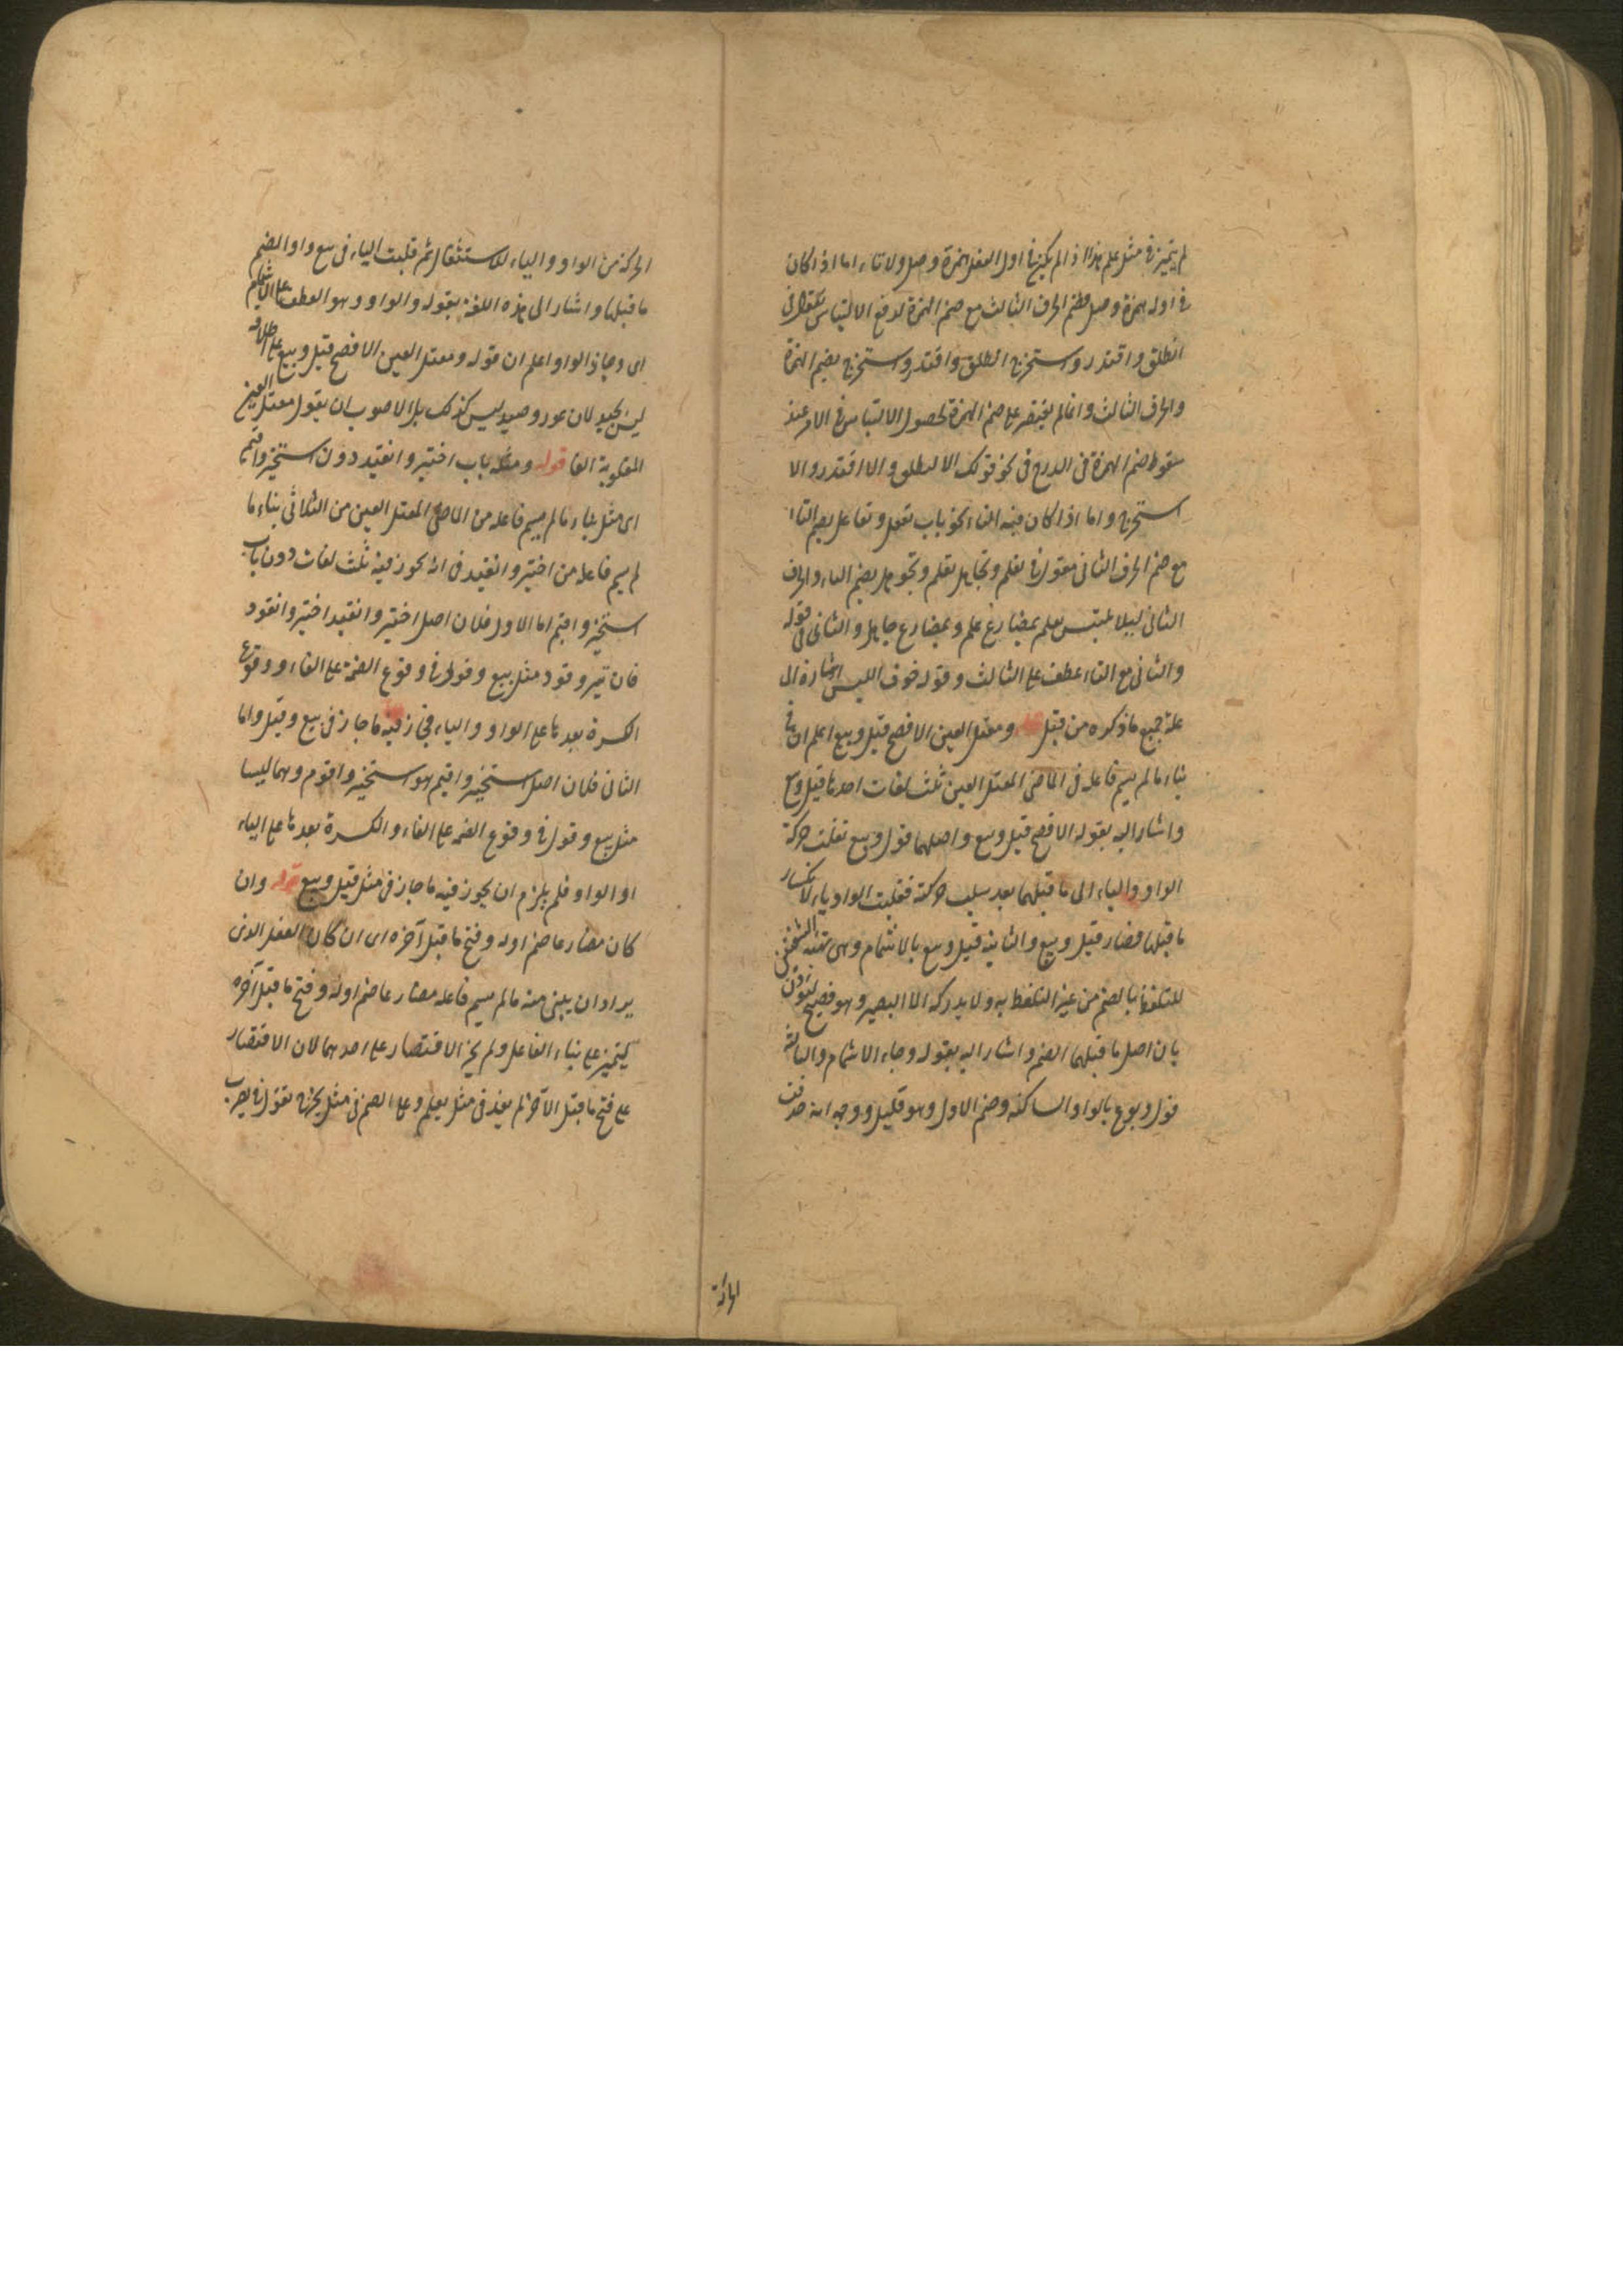 لم يتميز فى مثل علم هذا اذا لم يكن فى اول الفعل همزة وصل ولا تاء اما اذا كان
فى اوله همزة وصل فضم الحرف الثالث مع ضم الهمزة لدفع الالتباس كقولك فى
انطلق واقتدر واستخرج انطلق واقتدر واستخرج بضم الهمزة
والحرف الثالث وانما لم يقتصر على ضم الهمزة لحصول الالتباس فى الامر عند
سقوط ضم الهمزة فى الدرج فى نحو قولك الا انطلق والا اقتدر والا
استخرج واما اذا كان فيه التاء نحو باب تفعل وتفاعل يضم التاء
مع ضم الحرف الثانى فتقول فى تعلم وتجاهل تعلم وتجوهل بضم التاء والحرف
الثانى ليلا يلتبس تعلم بمضارع علم وبمضارع جاهل والثانى فى قوله
والثانى مع التاء عطف على الثالث وقوله خوف اللبس اشارة الى
علة جميع ما ذكره من قبل قوله ومعتل العين الافصح قيل وبيع اعلم ان فى
بناء ما لم يسم فاعله فى الماضى المعتل العين ثلث لغات احدها قيل وبيع
واشار اليه بقوله الافصح قيل وبيع واصلهما قول وبيع نقلت حركة
الواو والياء الى ما قبلهما بعد سلب حركته فقلبت الواو ياء لانكسار
ما قبلها فصار قيل وبيع والثانية قيل وبيع بالاشمام وهى تهيئة الشفتين
للتلفظ بالضم من غير التلفظ به ولا يدركه الا البصير وهو فصيح ليؤذن
بان اصل ما قبلهما الضم واشار اليه بقوله وجاء الاشمام والثالثة
قول وبوع بالواو الساكنة وضم الاول وهو قليل ووجه انه حذفت
الحركة من الواو والياء للاستثقال ثم قلبت الياء فى بيع واوا لضم
ما قبلها واشار الى هذه اللغة بقوله والواو وهو العطف على الاشمام
اى وجاء الواو واعلم ان قوله ومعتل العين الافصح قيل وبيع على اطلاقه
ليس بجيد لان عور وصيد ليس كذلك بل الاصوب ان يقول معتل العين
المقلوبة الفا قوله ومثله باب اختير وانقيد دون استخير واقيم
اى مثل بناء ما لم يسم فاعله من الماضى المعتل العين من الثلاثى بناء ما
لم يسم فاعله من اختير وانقيد فى انه يجوز فيه ثلث لغات دون باب
استخير واقيم اما الاول فلان اصل اختير وانقيد اختير وانقود
فان تير وقود مثل بيع وقول فى وقوع الضمة على الفاء ووقوع
الكسرة بعدها على الواو والياء فجاز فيه ما جاز فى بيع وقيل واما
الثانى فلان اصل استخير واقيم هو استخير واقوم وهما ليسا
مثل بيع وقول فى وقوع الضمة على الفاء والكسرة بعدها على الياء
او الواو فلم يلزم ان يجوز فيه ما جاز فى مثل قيل وبيع قوله وان
كان مضارعا ضم اوله وفتح ما قبل آخره اى ان كان الفعل الذى
يراد ان يبنى منه ما لم يسم فاعله مضارعا ضم اوله وفتح ما قبل آخره
ليتميز على بناء الفاعل ولم يجز الاقتصار على احدهما لان الاقتصار
على فتح ما قبل الآخر لم يفد فى مثل يعلم وعلى الضم فى مثل يخرج تقول فى يضرب